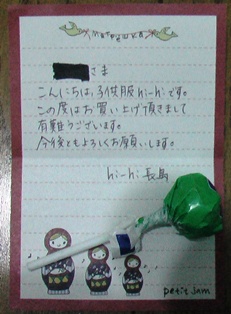 さま
こんにちは。子供服hi-hiです。
この度はお買い上げ頂きまして
有難うございます。
今後ともよろしくお願いします。
hi-hi 長島
petit jam